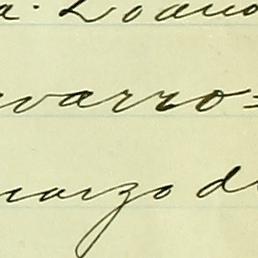 a. Loano
varro=
marzo di